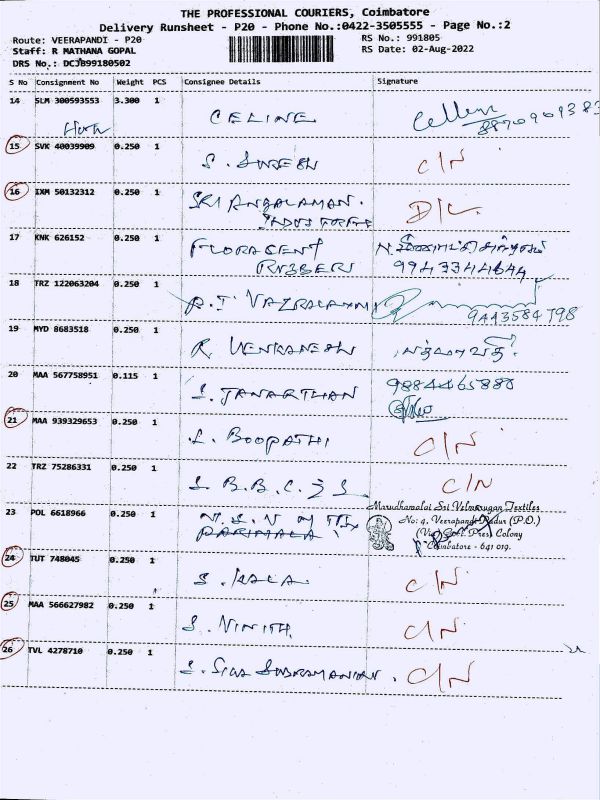 THE PROFESSIONAL COURIERS, Coimbatore
Delivery Runsheet - P20 - Phone No.:0422-3505555 - Page No.:2
Route: VEERAPANDI - P20
RS No.: 991805
Staff: R MATHANA GOPAL
RS Date: 02-Aug-2022
DRS No.: DCJB99180502
S No Consignment No Weight PCS Consignee Details Signature
14 SLM 300593553 3.300 1 CELINE
15 SVK 40039909 0.250 1 S. SURESH C/N
16 IXM 50132312 0.250 1 SRI ANGALAMAN. D/L
17 KNK 626152 0.250 1 FLORASENT
RUBBERS 9943344644
18 TRZ 122063204 0.250 1 9443584798
19 MYD 8683518 0.250 1 R VENKANESH
20 MAA 567758951 0.115 1 S. JANARTHAN 9884465880
21 MAA 939329653 0.250 1 L. BOOPATHI C/N
22 TRZ 75286331 0.250 1 C/N
23 POL 6618966 0.250 1
PARIMALA
Marudhamalai Sri Velmurugan Textiles
No: 9, Veerapandi Pudur (P.O.)
(Via) Govt. Press Colony
Coimbatore - 641 019.
24 TUT 748045 0.250 1 S. KALA C/N
25 MAA 566627982 0.250 1 S. NINITH. C/N
26 TVL 4278710 0.250 1 S. SIVA SUBRAMANIAN. C/N